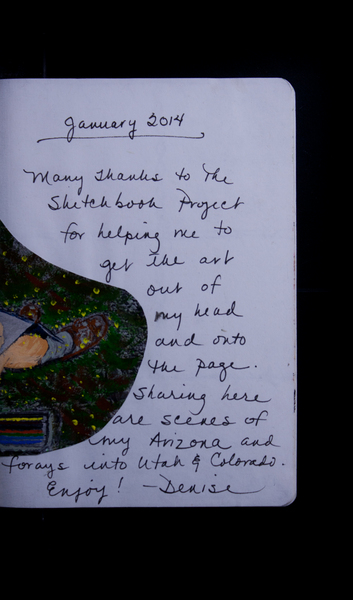 January 2014
Many thanks to The
Sketchbook Project
for helping me to
get the art
out of
my head
and onto
the page.
Sharing here
are scenes of
my Arizona and
forays into Utah & Colorado.
Enjoy! - Denise